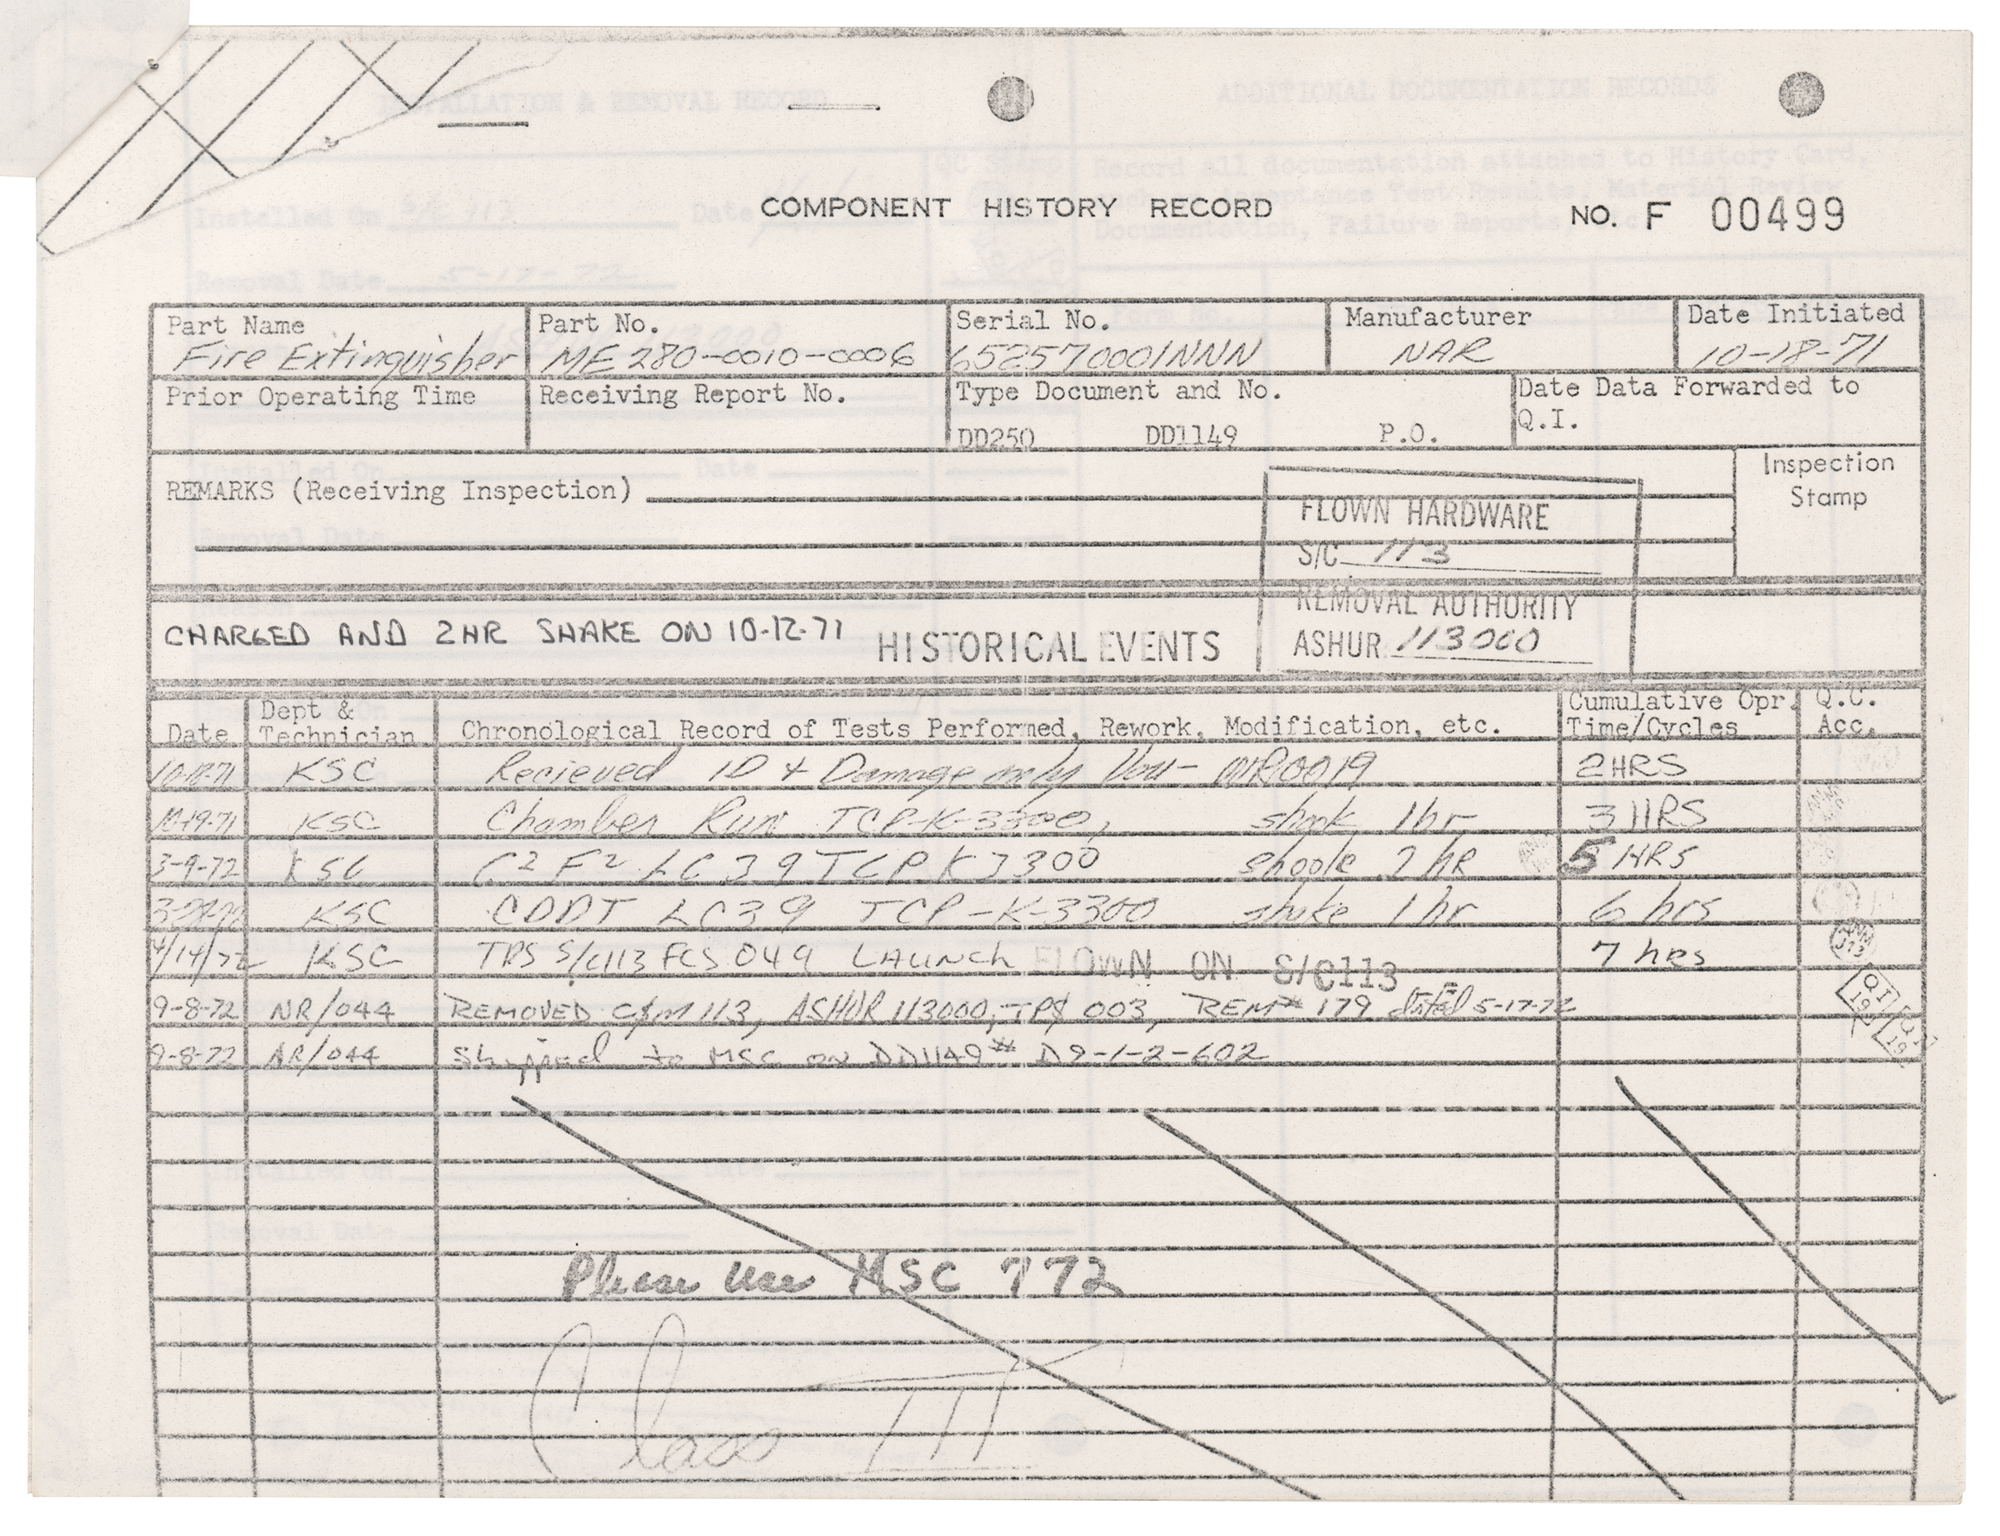 COMPONENT HISTORY RECORD
NO. F 00499
Part Name
Fire Extinguisher
Part No.
ME 280-0010-0006
Serial No.
652570001NNN
Manufacturer
NAR
Date Initiated
10-18-71
Prior Operating Time
Receiving Report No.
Type Document and No.
DD250 DD1149 P.O.
Date Data Forwarded to
Q.I.
REMARKS (Receiving Inspection)
Inspection
Stamp
FLOWN HARDWARE
S/C 113
REMOVAL AUTHORITY
ASHUR 113000
CHARGED AND 2HR SHAKE ON 10-12-71
HISTORICAL EVENTS
Date
Dept &
Technician
Chronological Record of Tests Performed, Rework, Modification, etc.
Cumulative Opr.
Time/Cycles
Q.C.
Acc.
10-18-71 KSC Recieved ID & Damage only 2HRS
KSC Chamber Run TCP-K-3300, shook 1hr 3 HRS
3-9-72 KSC C² F² LC39 TCP K3300 shook 2 hr 5 HRS
KSC CDDT LC39 TCP-K-3300 shake 1 hr 6 hrs
4/14/72 KSC TPS S/C113 FCS 049 LAUNCH FLOWN ON S/C113 7 hrs
9-8-72 NR/044 REMOVED C/M 113, ASHUR 113000, TPS 003, REM# 179 dated 5-17-72
9-8-72 NR/044 Shipped to MSC on DD1149# D9-1-2-602
Please use MSC 772
Class III